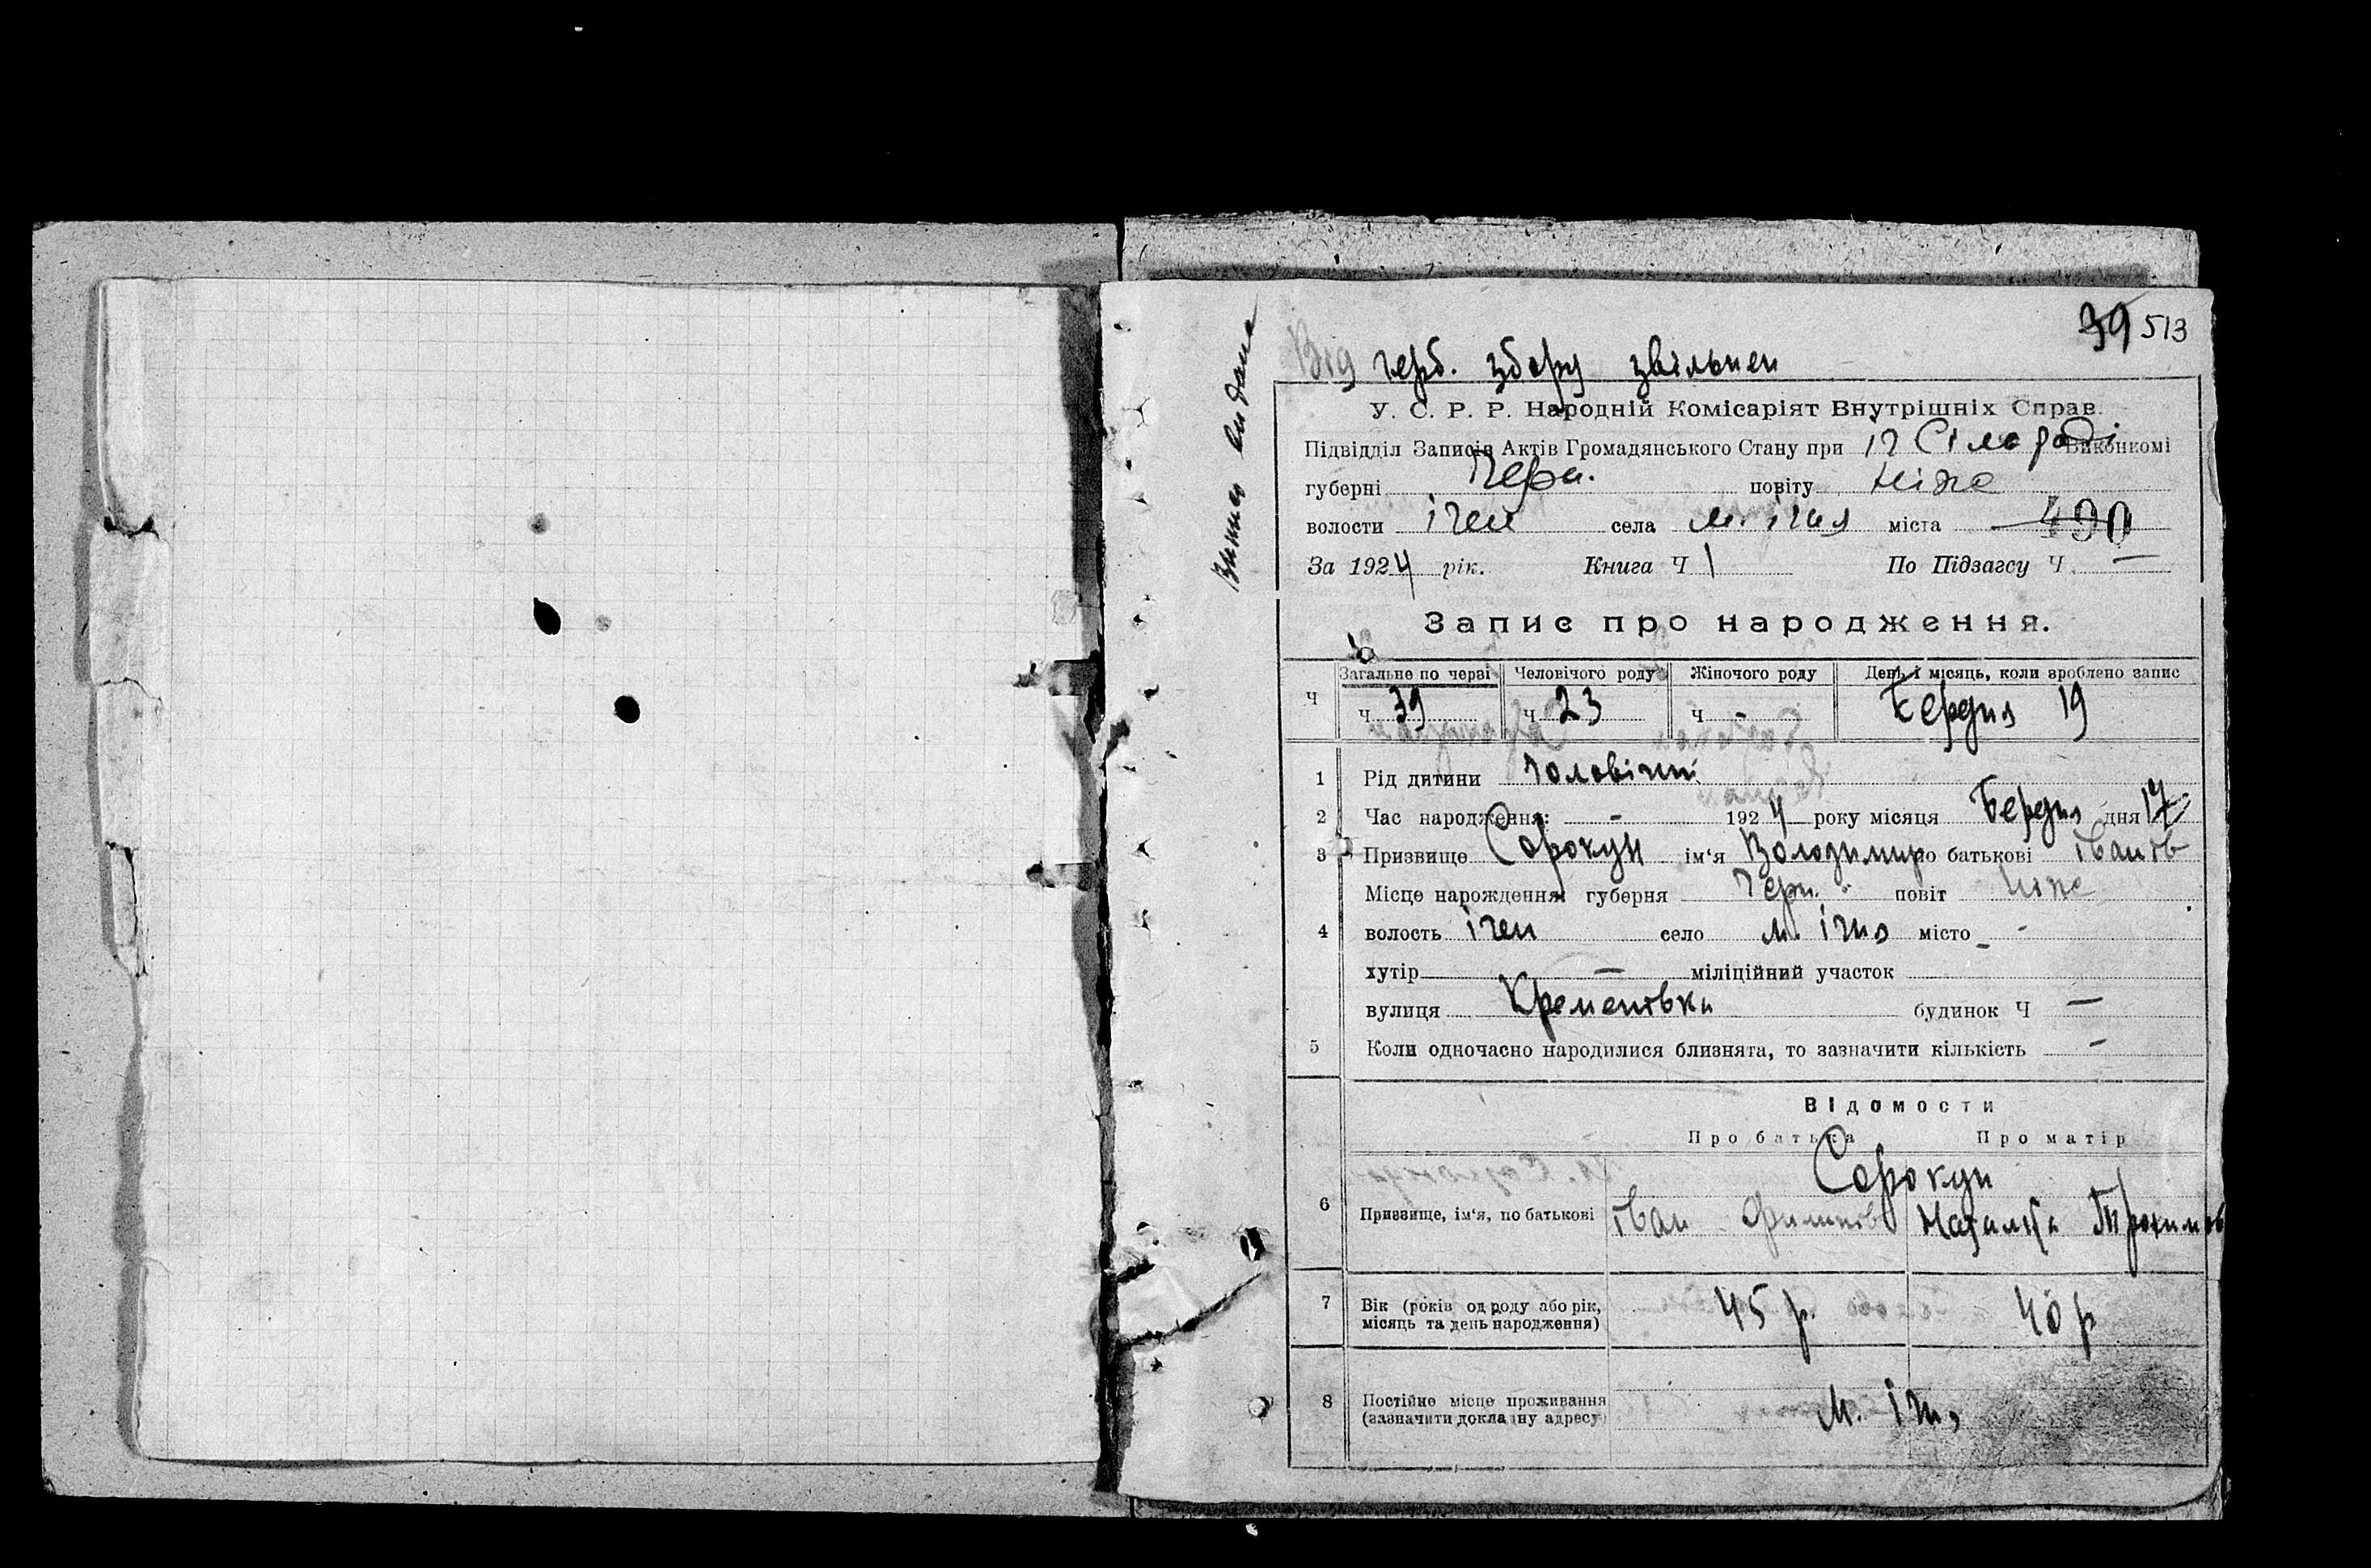 39 513
Від герб. збору звільнен
Виписъ видана
У. С. Р. Р. Народній Комісаріят Внутрішніх Справ.
Підвідділ Записів Актів Громадянського Стану при 12 Сілораді Виконкомі
губерні Черн. повіту Ніже
волости Ічен села м. Ічня міста 490
За 1924 рік. Книга Ч 1 По Підзагсу Ч —
Запис про народження.
Загальне по черзі Человічого роду Жіночого роду День і місяць, коли зроблено запис
Ч Ч 39 Ч 23 Ч - Бердня 19
1 Рід дитини Чоловічий
2 Час народження: - 1924 року місяця Бердня дня 17
3 Призвище Сорокун ім'я Володимир по батькові Іванів
Місце нарождення: губерня Черн. повіт Ніже
4 волость Ічен село м. Ічня місто -
хутір — міліційний участок
вулиця Кременівка будинок Ч —
5 Коли одночасно народилися близнята, то зазначити кількість -
Відомости
Про батька Про матір
Сорокун
6 Призвище, ім'я, по батькові Іван Филипів Наталка Трохимов
7 Вік (років од роду або рік, 45 р. 40 р
місяць та день народження)
8 Постійне місце проживання м. Ічня
(зазначити докладну адресу)